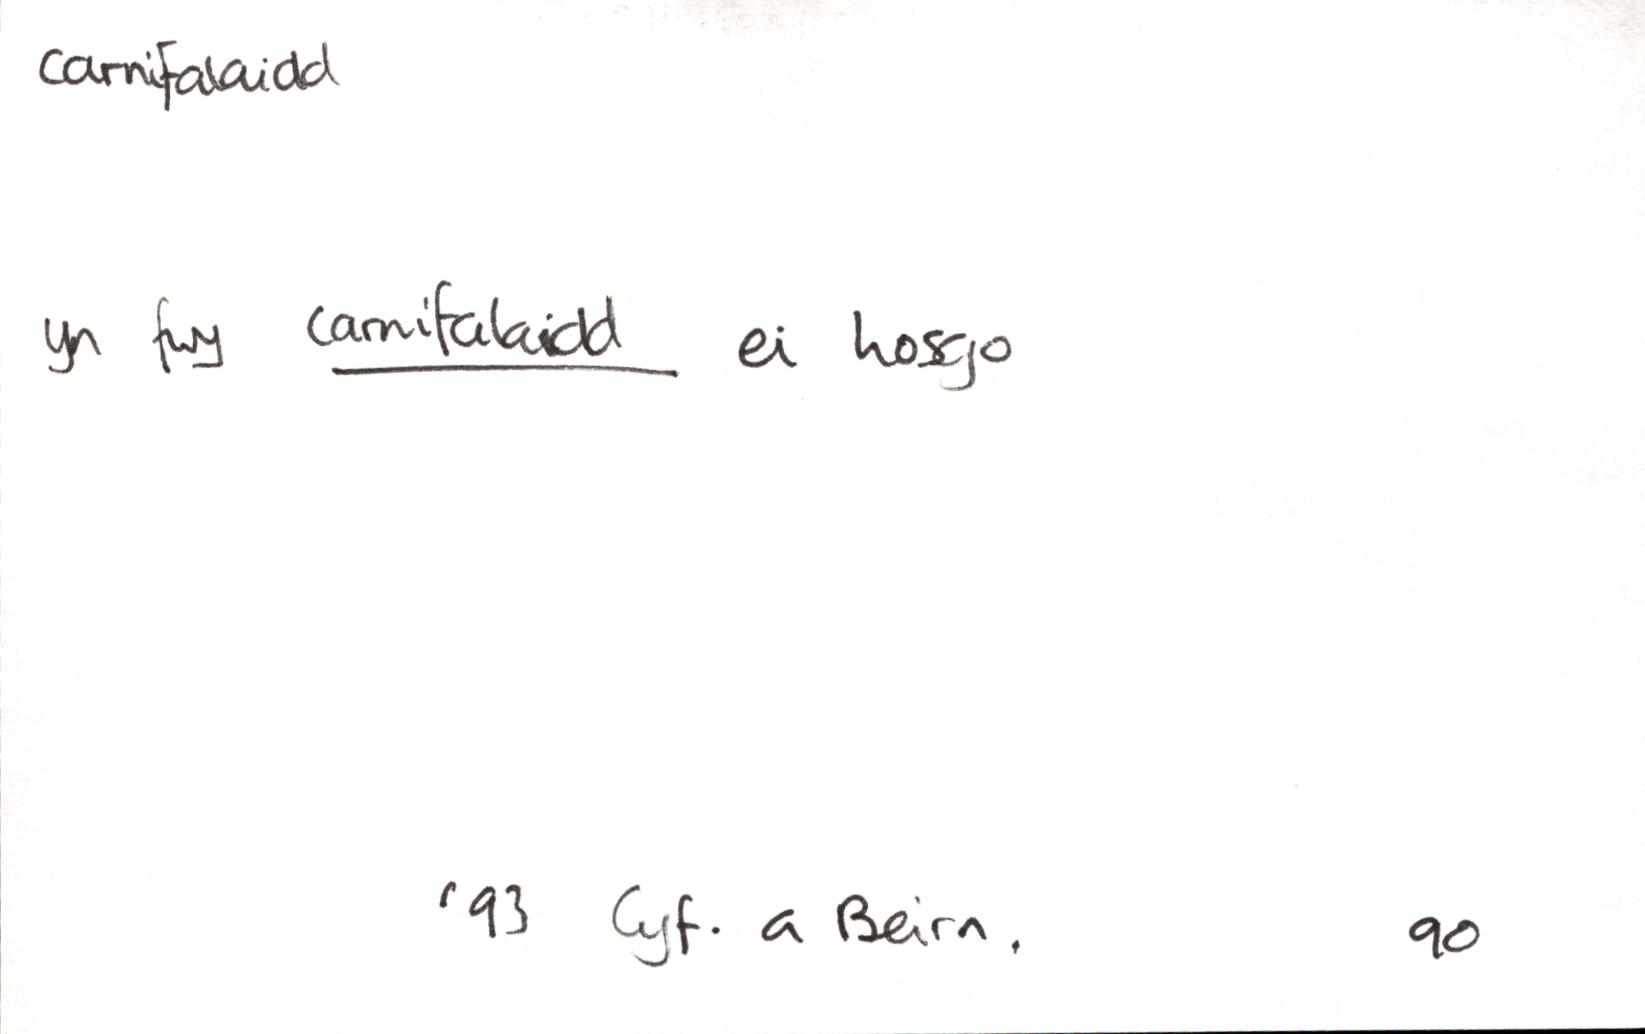 carnifalaidd
yn fwy carnifalaidd ei hosgo
'93 Cyf. a Beirn. 90